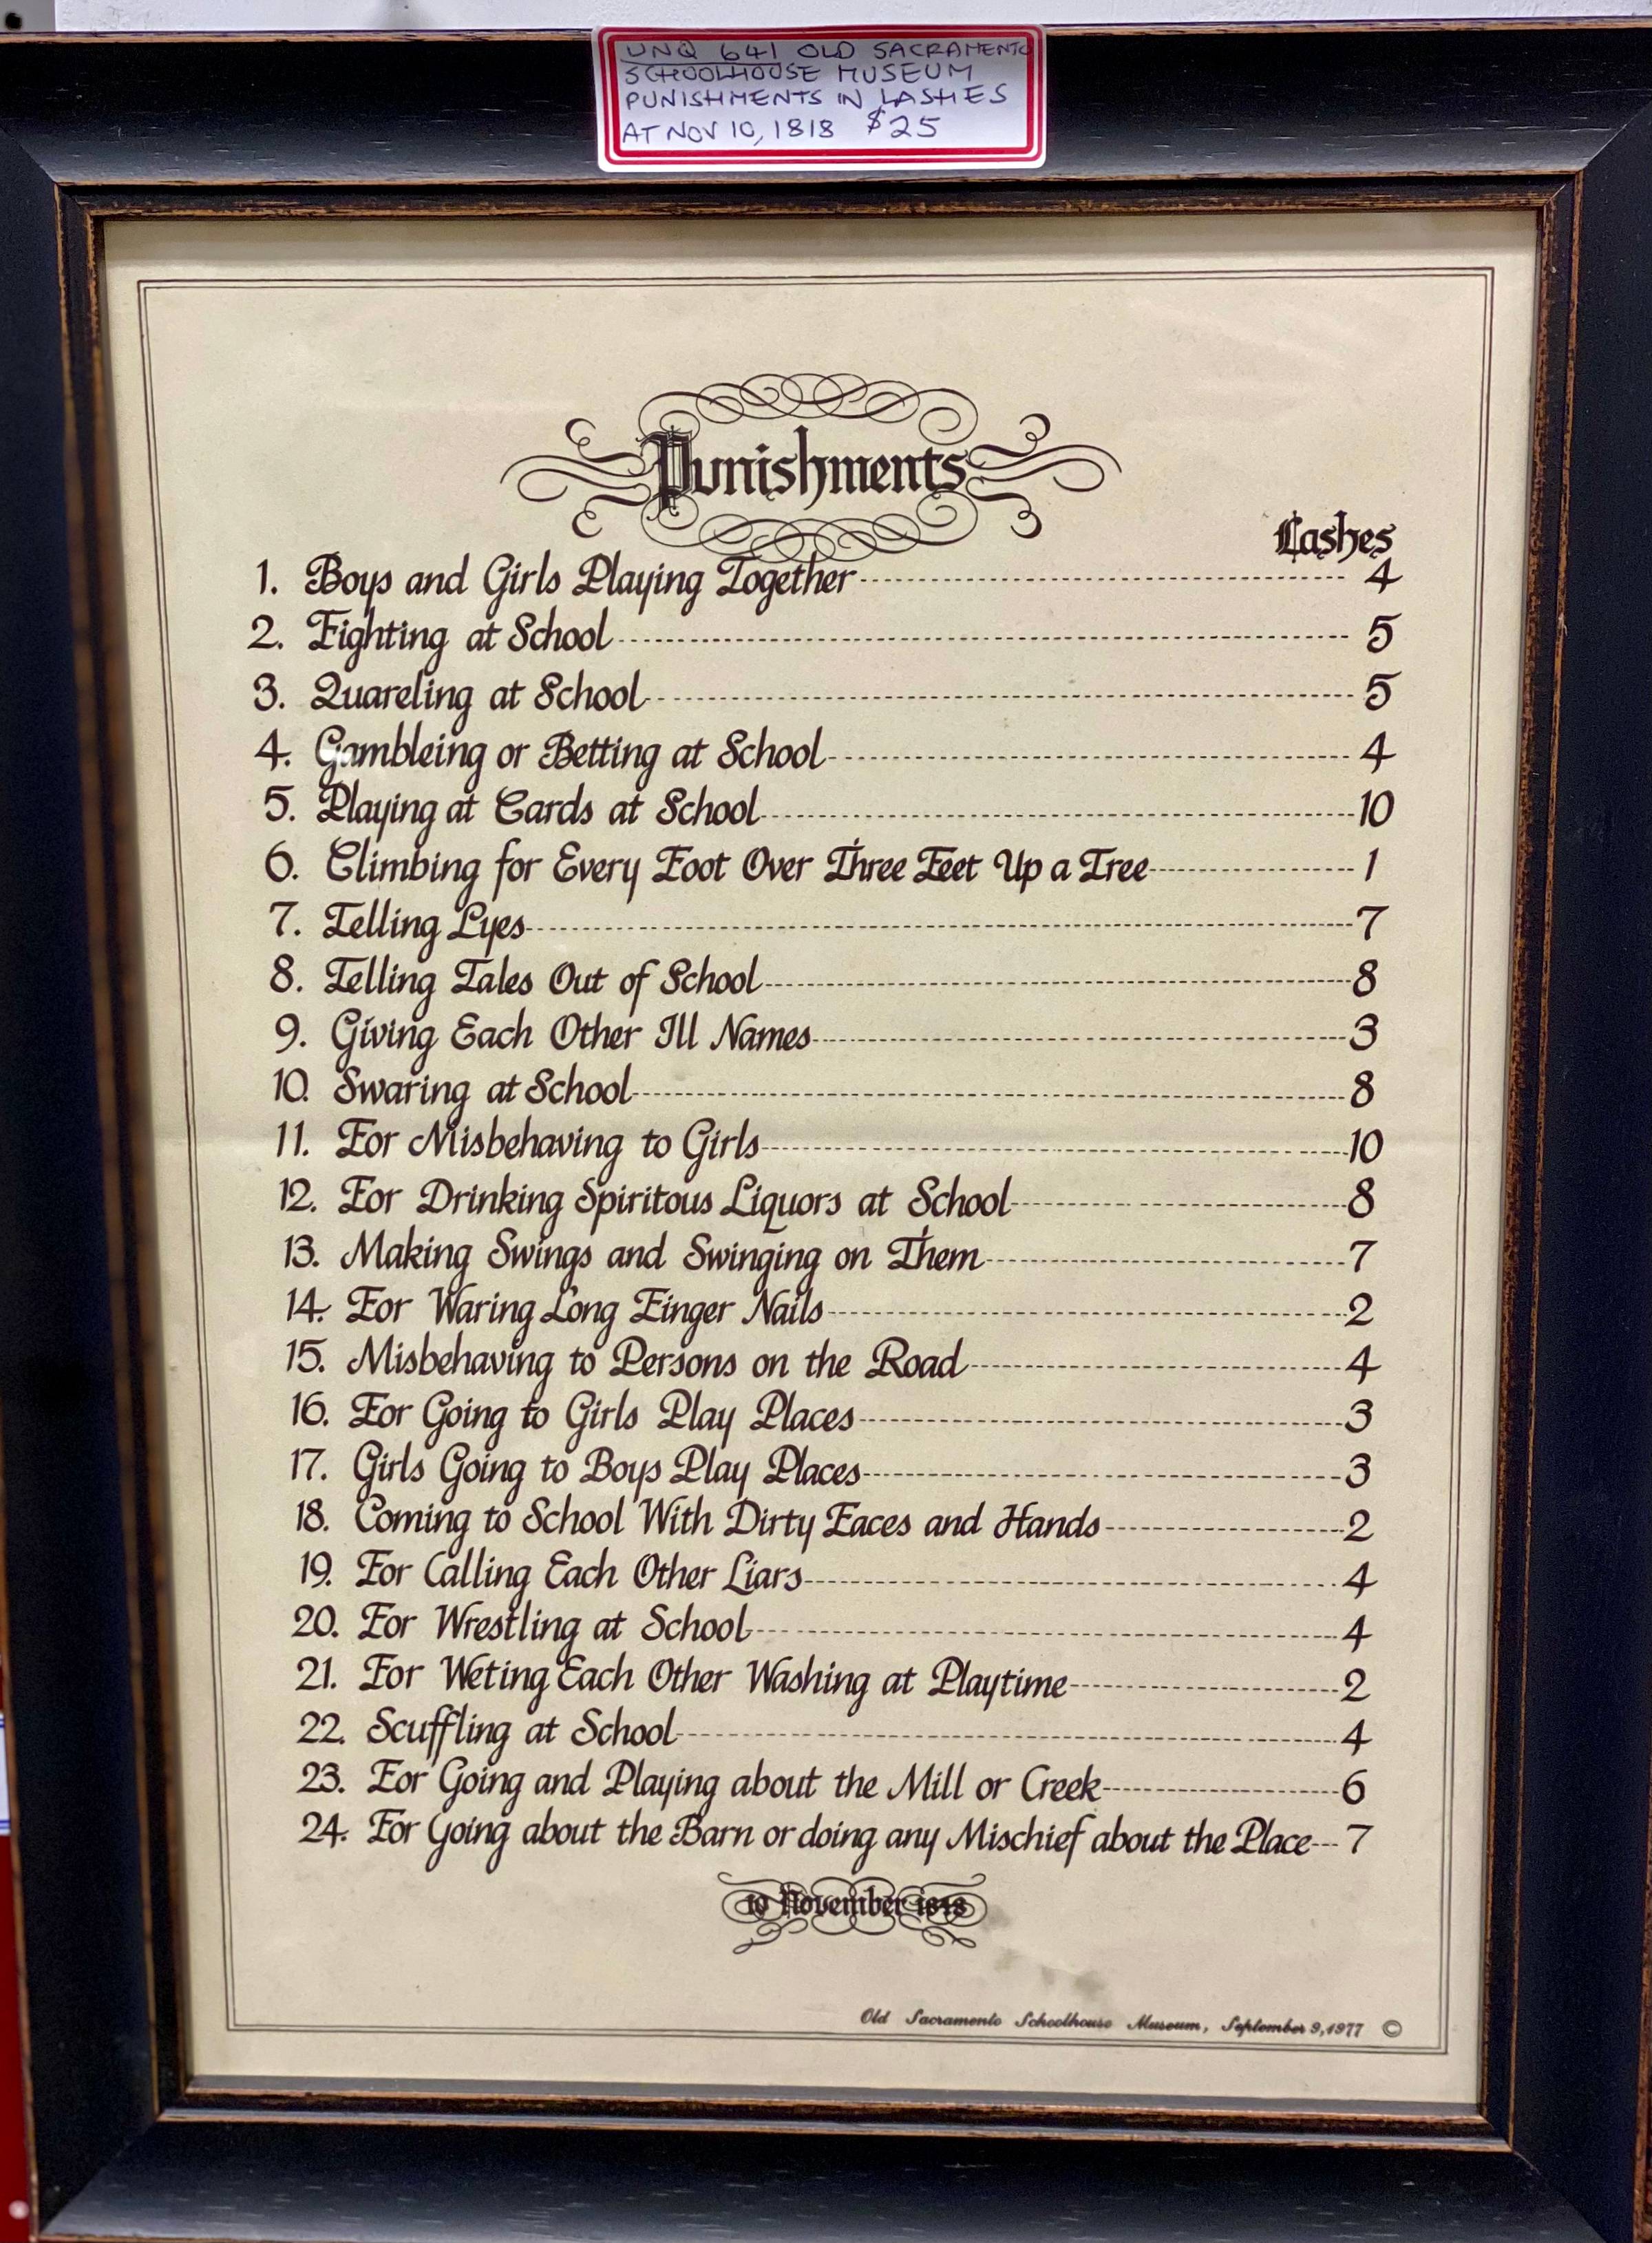 UNQ 641 OLD SACRAMENTO
SCHOOLHOUSE MUSEUM
PUNISHMENTS IN LASHES
AT NOV 10, 1818 $25
Punishments
Lashes
1. Boys and Girls Playing Together 4
2. Fighting at School 5
3. Quareling at School 5
4. Gambleing or Betting at School 4
5. Playing at Cards at School 10
6. Climbing for Every Foot Over Three Feet Up a Tree 1
7. Telling Lyes 7
8. Telling Tales Out of School 8
9. Giving Each Other Ill Names 3
10. Swaring at School 8
11. For Misbehaving to Girls 10
12. For Drinking Spiritous Liquors at School 8
13. Making Swings and Swinging on Them 7
14. For Waring Long Finger Nails 2
15. Misbehaving to Persons on the Road 4
16. For Going to Girls Play Places 3
17. Girls Going to Boys Play Places 3
18. Coming to School With Dirty Faces and Hands 2
19. For Calling Each Other Liars 4
20. For Wrestling at School 4
21. For Weting Each Other Washing at Playtime 2
22. Scuffling at School 4
23. For Going and Playing about the Mill or Creek 6
24. For Going about the Barn or doing any Mischief about the Place 7
10 November 1848
Old Sacramento Schoolhouse Museum, September 9, 1977 ©